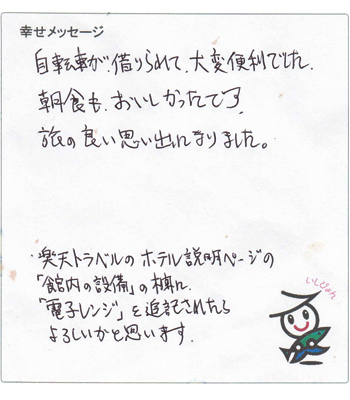 幸せメッセージ
自転車が借りられて、大変便利でした。
朝食も、おいしかったです
旅の良い思い出になりました。
楽天トラベルのホテル説明ページの
「館内の設備」の欄に
「電子レンジ」を追記されたら
よろしいかと思います。
いしぴょん